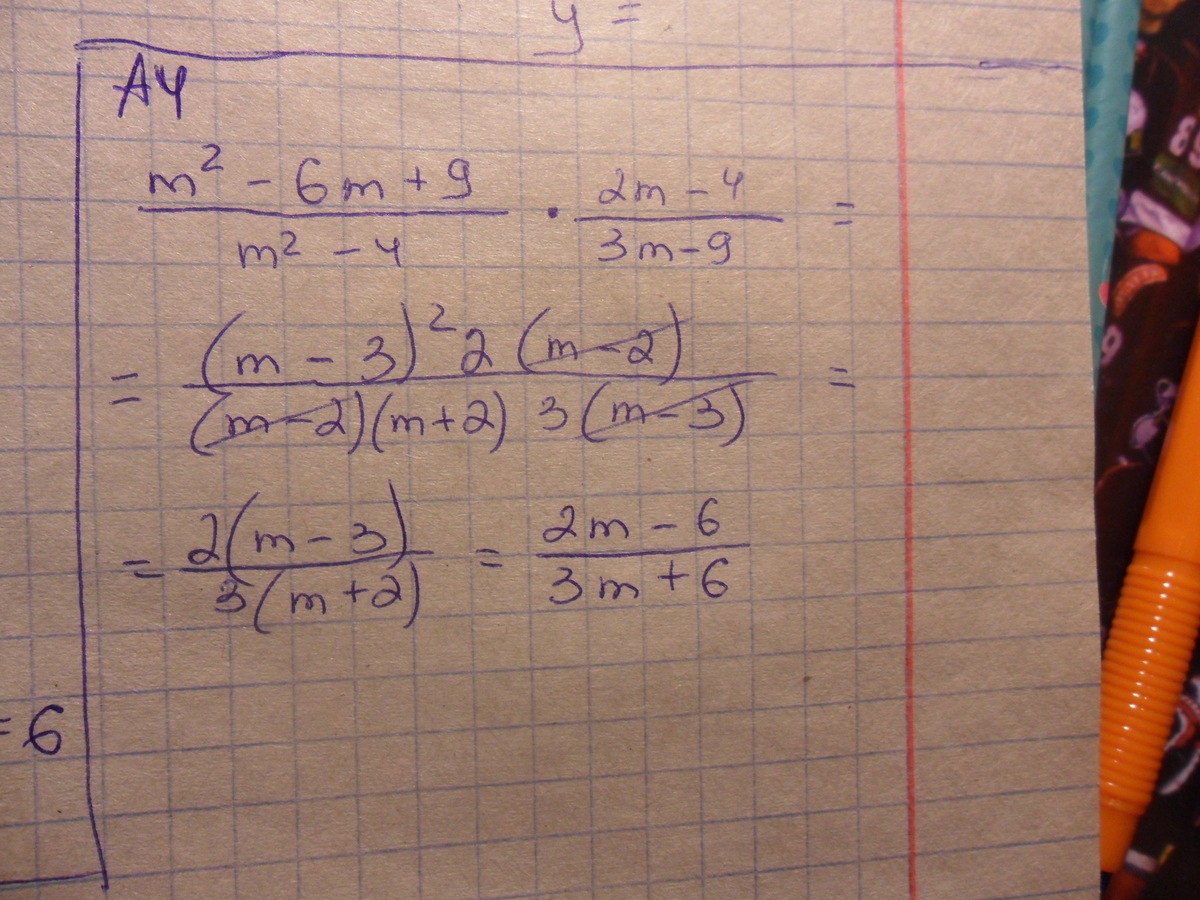 y =
A4
m² - 6m + 9 / m² - 4 · 2m - 4 / 3m - 9 =
= (m - 3)² 2 (m - 2) / (m - 2)(m + 2) 3 (m - 3) =
= 2(m - 3) / 3(m + 2) = 2m - 6 / 3m + 6
= 6
8
9